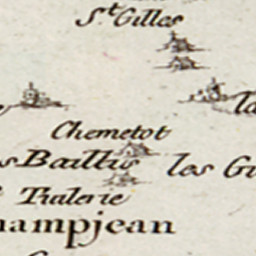 St Gilles
la
Chemetot
s Baillis
les Gu
Tralerie
hampjean